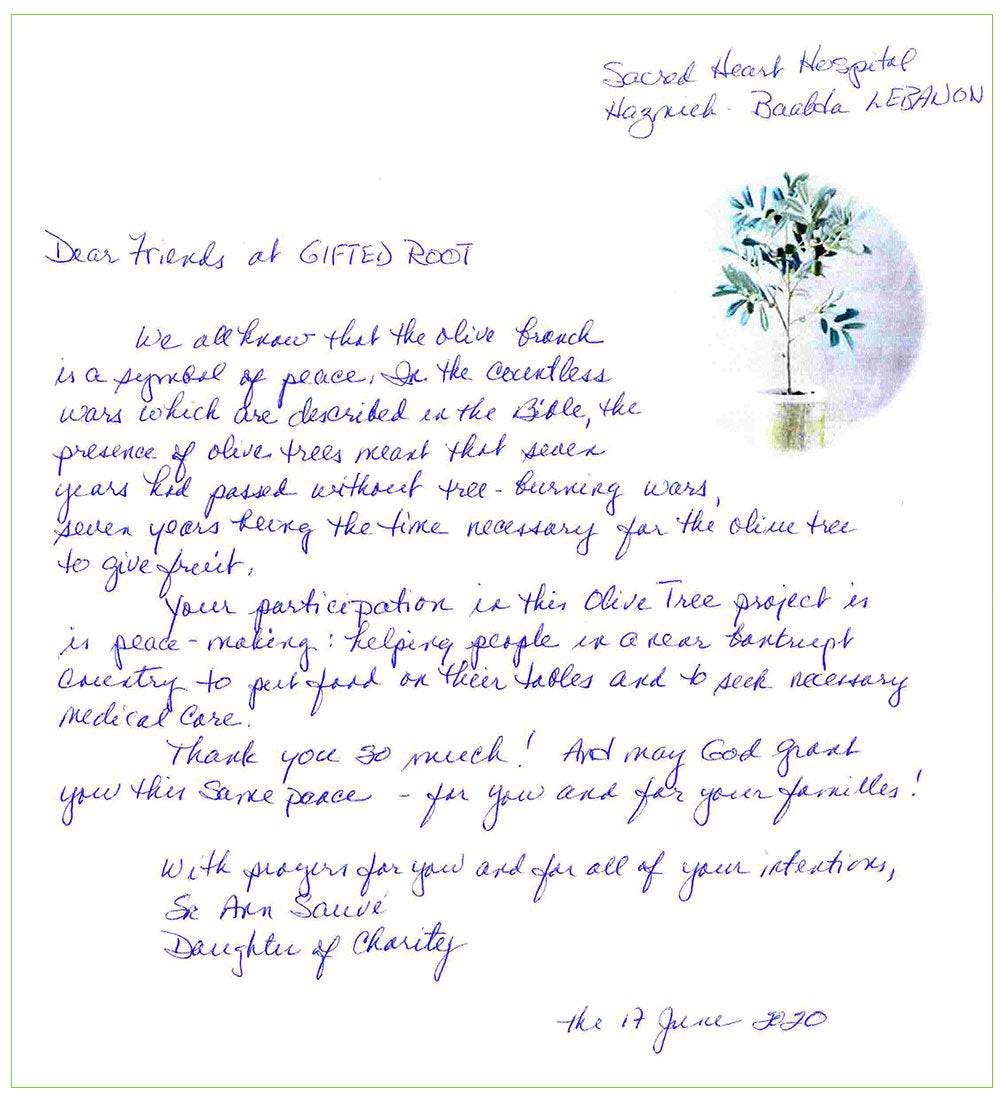 Sacred Heart Hospital
Hazmieh - Baabda LEBANON
Dear Friends at GIFTED ROOT
We all know that the olive branch
is a symbol of peace. In the countless
wars which are described in the Bible, the
presence of olive trees meant that seven
years had passed without tree-burning wars,
seven years being the time necessary for the olive tree
to give fruit.
Your participation in this Olive Tree project is
is peace-making: helping people in a near bankrupt
country to put food on their tables and to seek necessary
medical care.
Thank you so much! And may God grant
you this same peace - for you and for your families!
With prayers for you and for all of your intentions,
Sr Ann Sauvé
Daughter of Charity
the 17 June 2020